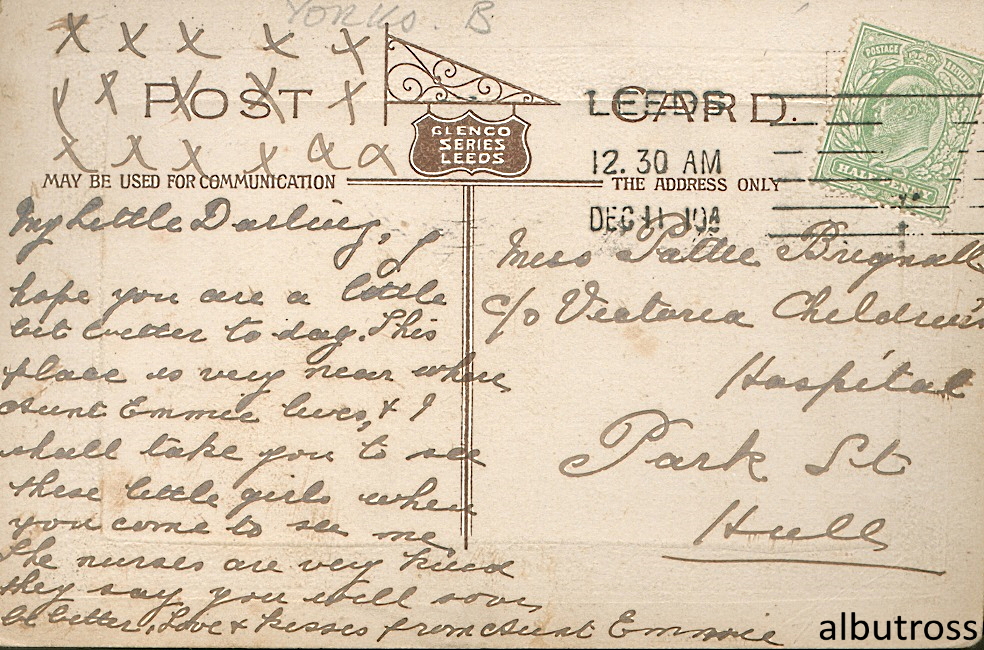 YORKS. B
X X X X X
X X X X X
X X X X X X
POST CARD.
GLENCO
SERIES
LEEDS
LEEDS
12.30 AM
DEC 11 10
POSTAGE
HALFPENNY
MAY BE USED FOR COMMUNICATION
THE ADDRESS ONLY
My Little Darling, I
hope you are a little
bit better to day. This
place is very near where
Aunt Emmie lives, & I
shall take you to see
these little girls when
you come to see me,
The nurses are very kind
they say you will soon
be better, Love & kisses from Aunt Emmie
Miss Pattie Brignall
c/o Victoria Children's
Hospital
Park St
Hull
albutross